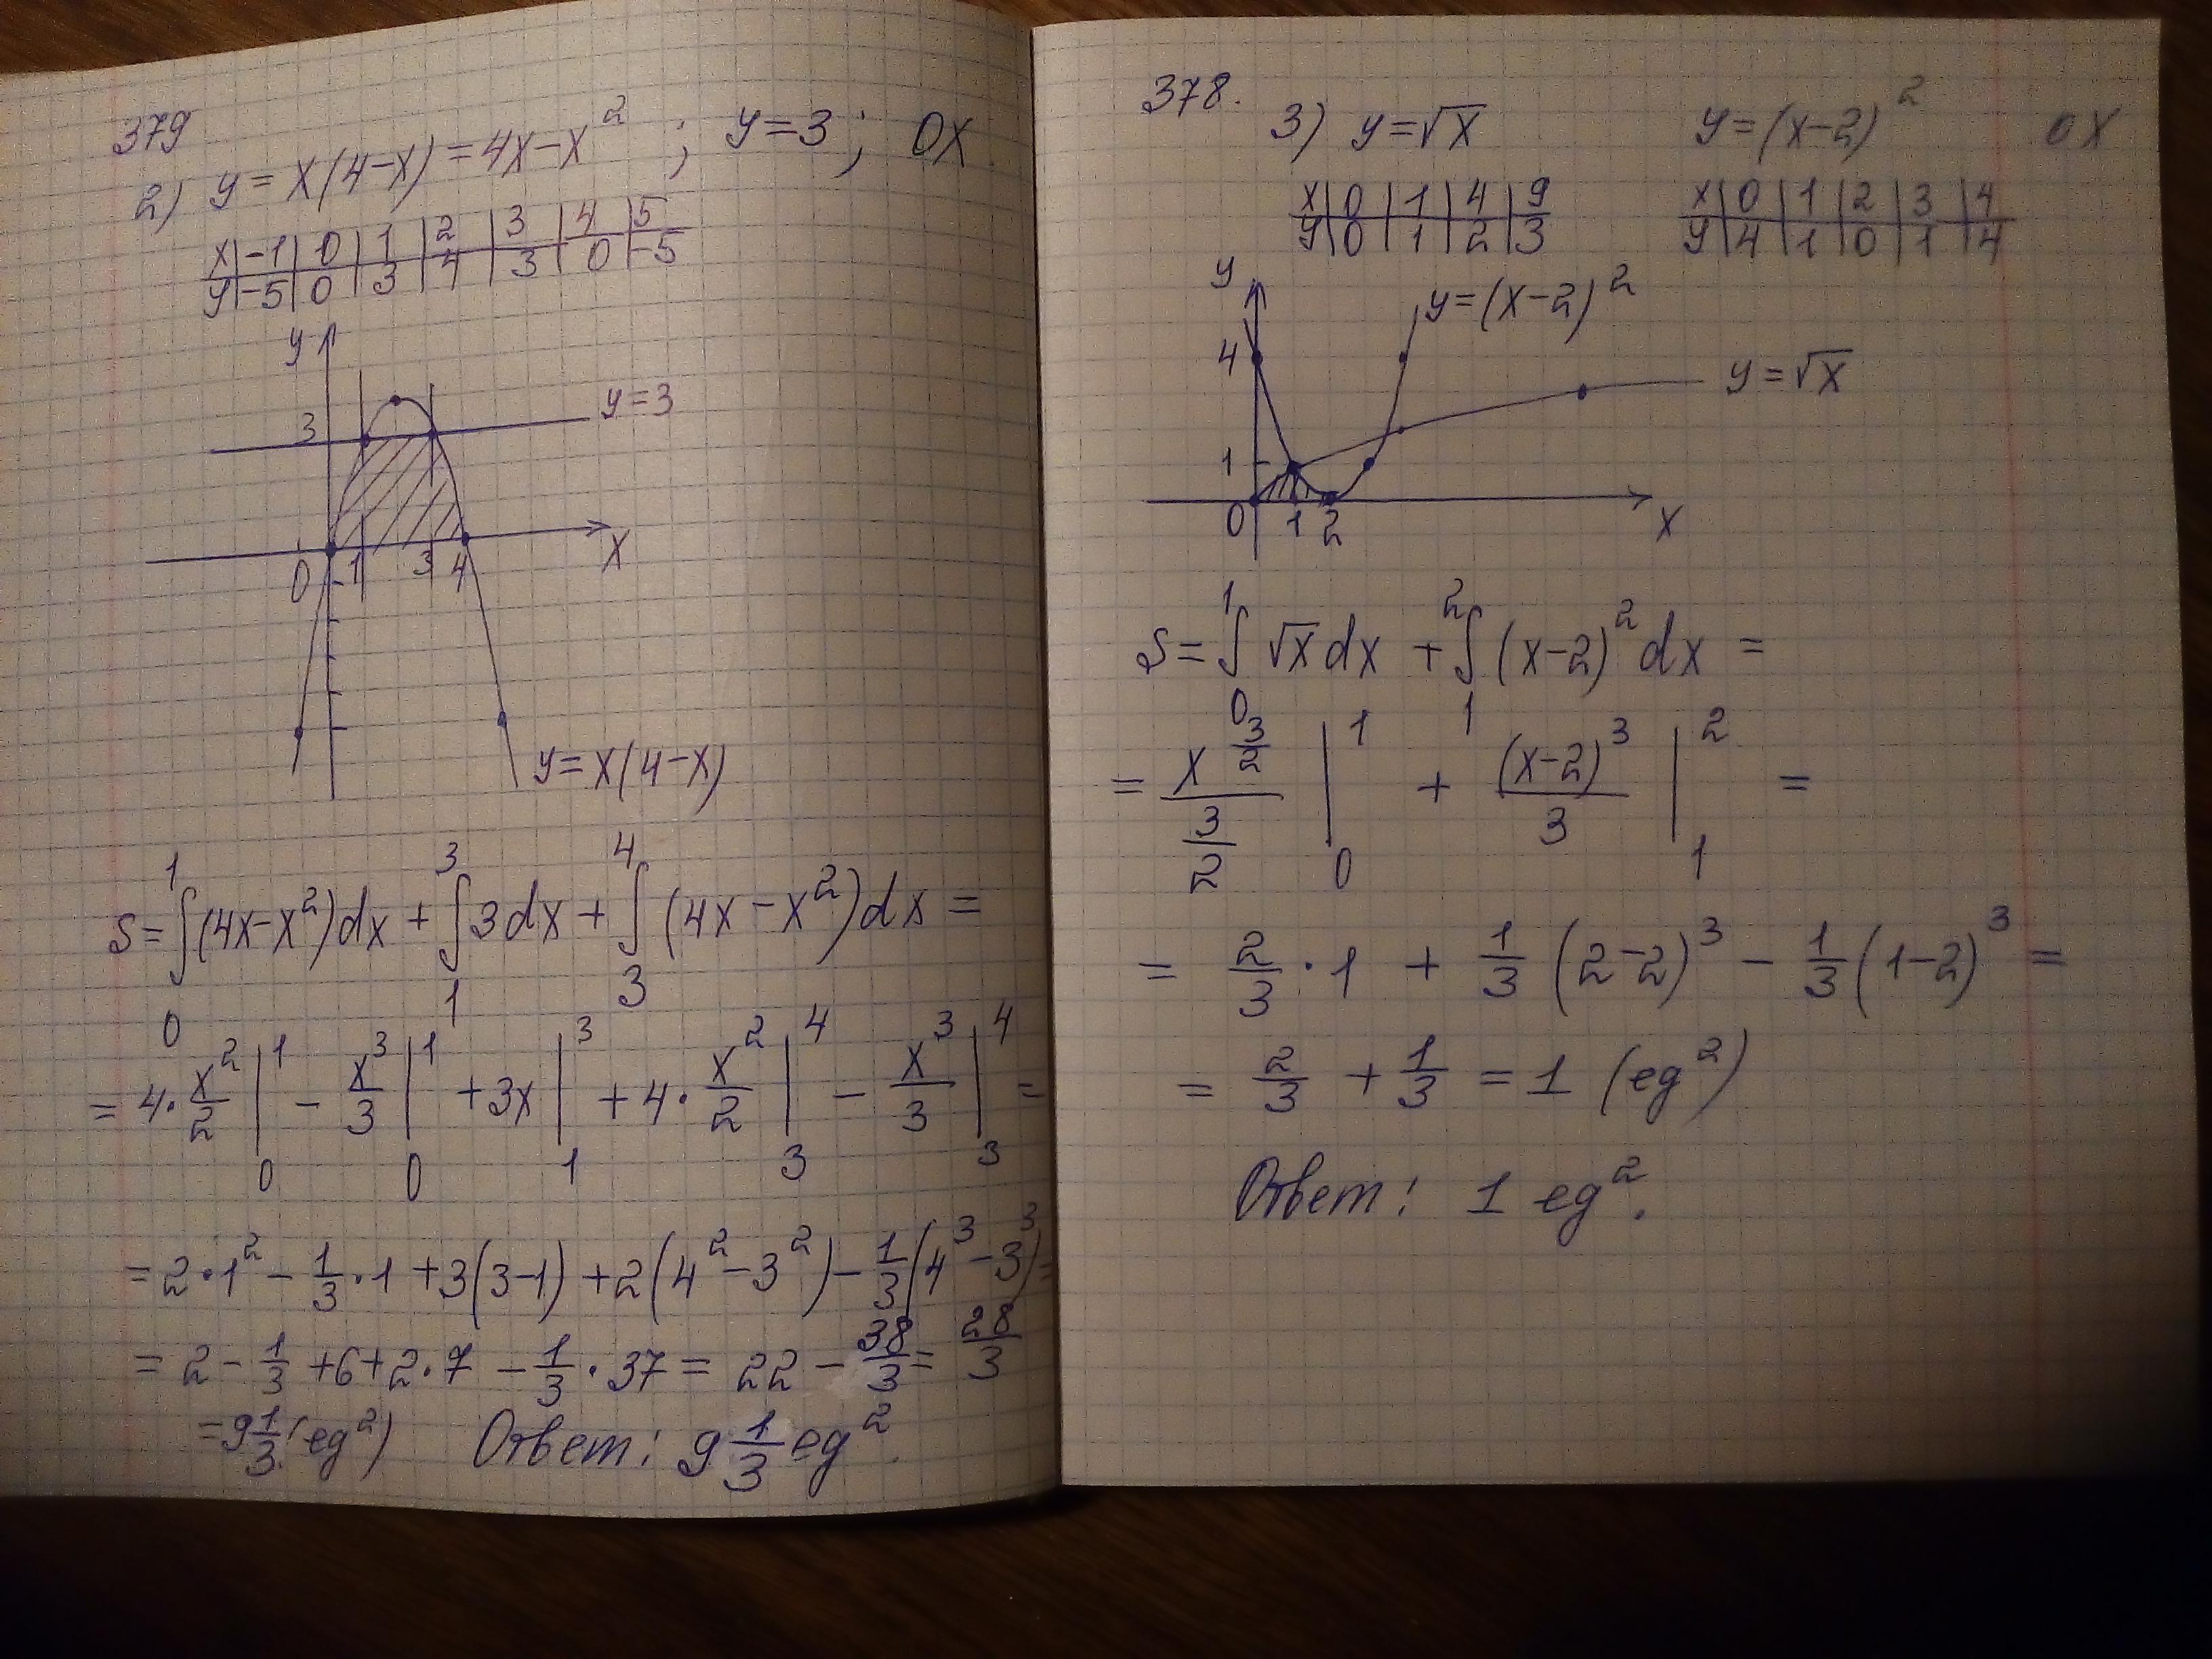 379
2) y = x(4-x) = 4x-x² ; y=3; 0x
x | -1 | 0 | 1 | 2 | 3 | 4 | 5
y | -5 | 0 | 3 | 4 | 3 | 0 | -5
y
3
y=3
0 1 3 4 x
y=x(4-x)
S = ∫₀¹(4x-x²)dx + ∫₁³3dx + ∫₃⁴(4x-x²)dx =
= 4·x²/2 |₀¹ - x³/3 |₀¹ + 3x |₁³ + 4·x²/2 |₃⁴ - x³/3 |₃⁴ =
= 2·1² - 1/3·1 + 3(3-1) + 2(4²-3²) - 1/3(4³-3³) =
= 2 - 1/3 + 6 + 2·7 - 1/3·37 = 22 - 38/3 = 28/3
= 9 1/3 (eg²) Ответ: 9 1/3 eg².
378.
3) y=√x y=(x-2)² 0x
x | 0 | 1 | 4 | 9
y | 0 | 1 | 2 | 3
x | 0 | 1 | 2 | 3 | 4
y | 4 | 1 | 0 | 1 | 4
y
y=(x-2)²
4
y=√x
1
0 1 2 x
S = ∫₀¹ √x dx + ∫₁² (x-2)² dx =
= x^(3/2)/(3/2) |₀¹ + (x-2)³/3 |₁² =
= 2/3·1 + 1/3(2-2)³ - 1/3(1-2)³ =
= 2/3 + 1/3 = 1 (eg²)
Ответ: 1 eg².